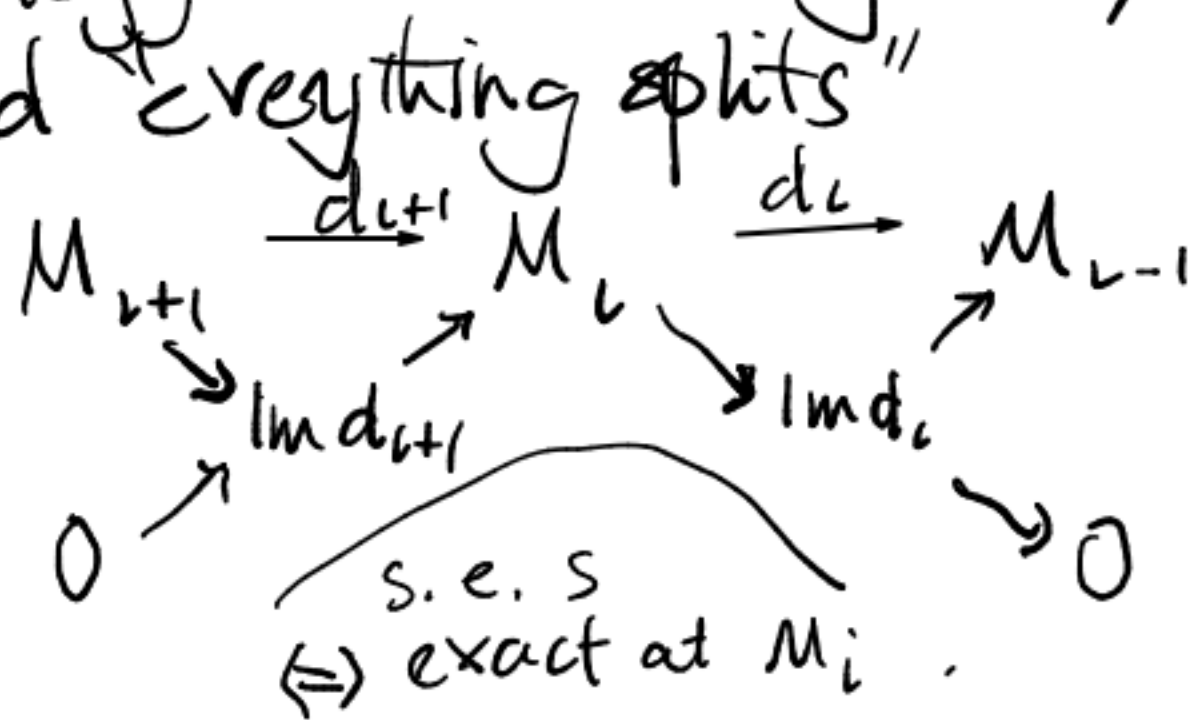 d "everything splits"
d_{i+1} d_i
M_{i+1} → M_i → M_{i-1}
Im d_{i+1} Im d_i
0 0
s.e.s
(=) exact at M_i .